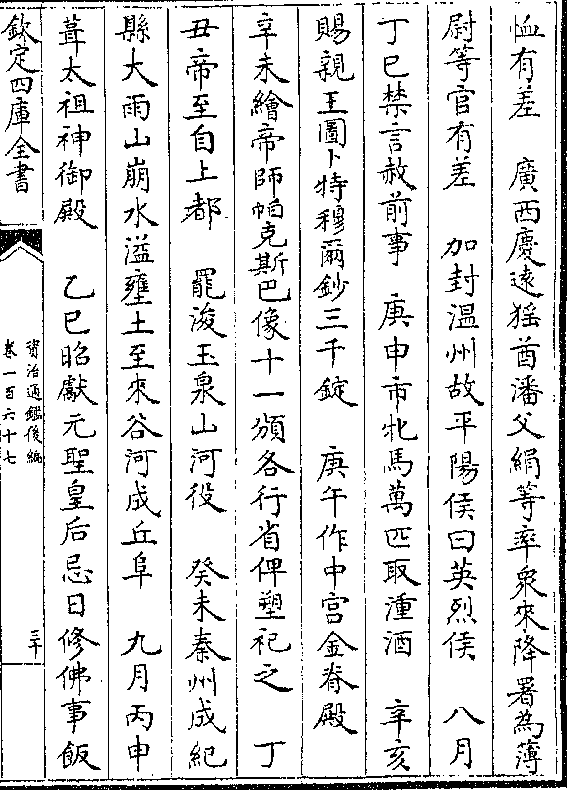 恤有差　廣西慶遠猺酋潘父絹等率衆來降署為薄
尉等官有差　加封温州故平陽侯曰英烈侯　八月
丁巳禁言赦前事　庚申市牝馬萬匹取湩酒　辛亥
賜親王圖卜特穆爾鈔三千錠　庚午作中宫金脊殿
辛未繪帝師帕克斯巴像十一頒各行省俾塑祀之　丁
丑帝至自上都　罷浚玉泉山河役　癸未秦州成紀
縣大雨山崩水溢壅土至來谷河成丘阜　九月丙申
葺太祖神御殿　乙巳昭獻元聖皇后忌日修佛事飯
欽定四庫全書
資治通鑑後編
卷一百六十七
三十